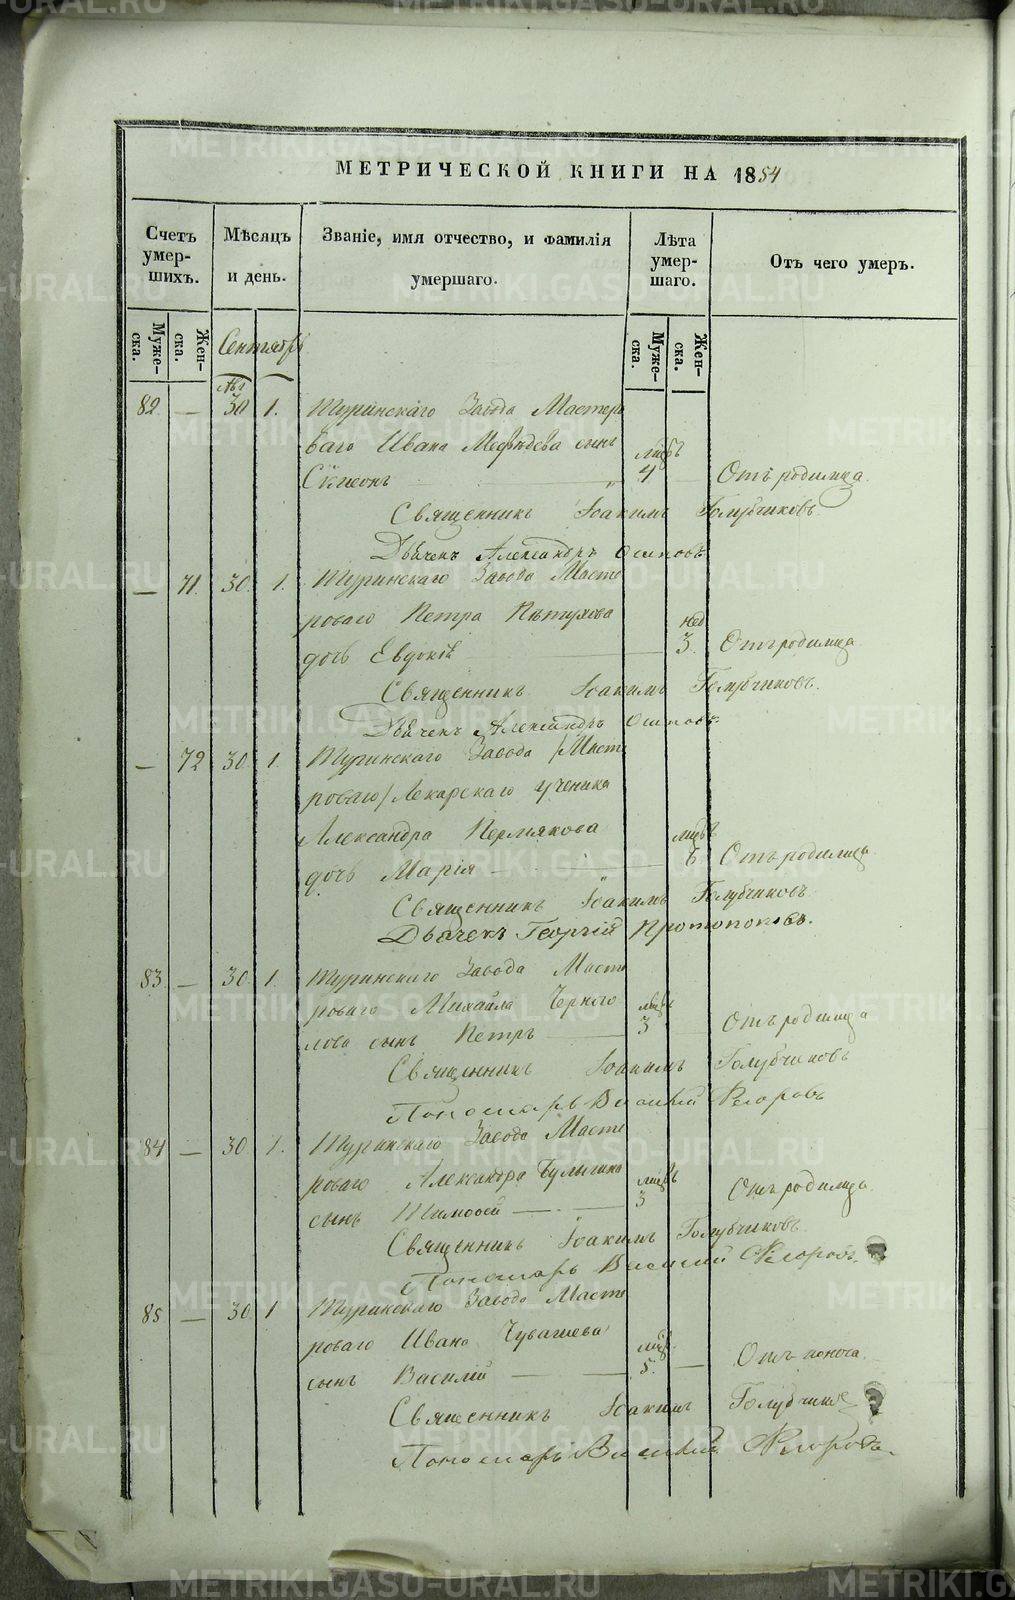 МЕТРИЧЕСКОЙ КНИГИ НА 1854
Счетъ умер-шихъ.
Мѣсяцъ и день.
Званіе, имя отчество, и фамилія умершаго.
Лѣта умер-шаго.
Отъ чего умеръ.
Муже-ска.
Жен-ска.
Сентябрь
Муже-ска.
Жен-ска.
Авг
82 — 30 1. Туринскаго Завода Мастеро
ваго Ивана сынъ
Симеонъ 4 Отъ родимца.
Священникъ Іоакимъ Голубчиковъ
Дьячекъ Александръ Осиповъ
— 71. 30. 1. Туринскаго Завода Масте
роваго Петра Пѣтухова нед
дочь Евдокія 3. Отъ родимца
Священникъ Іоакимъ Голубчиковъ.
Дьячекъ Александръ Осиповъ.
— 72 30. 1. Туринскаго Завода /Масте
роваго/ Лекарскаго ученика
Александра Пермякова
дочь Марія — Отъ родимца
Священникъ Іоакимъ Голубчиковъ
Дьячекъ Георгій Протопоповъ.
83. — 30. 1. Туринскаго Завода Масте
роваго Михайла Черного
лова сынъ Петръ — 3 Отъ родимца
Священникъ Іоакимъ Голубчиковъ
Пономарь Василій Флоровъ
84 — 30 1. Туринскаго Завода Масте
роваго Александра Булыгина
сынъ Тимоѳей — 3 Отъ родимца
Священникъ Іоакимъ Голубчиковъ.
Пономарь Василій Флоровъ.
85 — 30. 1 Туринскаго Завода Масте
роваго Ивана Чувашева
сынъ Василій — 5. — Отъ поноса.
Священникъ Іоакимъ Голубчиковъ
Пономарь Василій Флоровъ.
METRIKI.GASO-URAL.RU